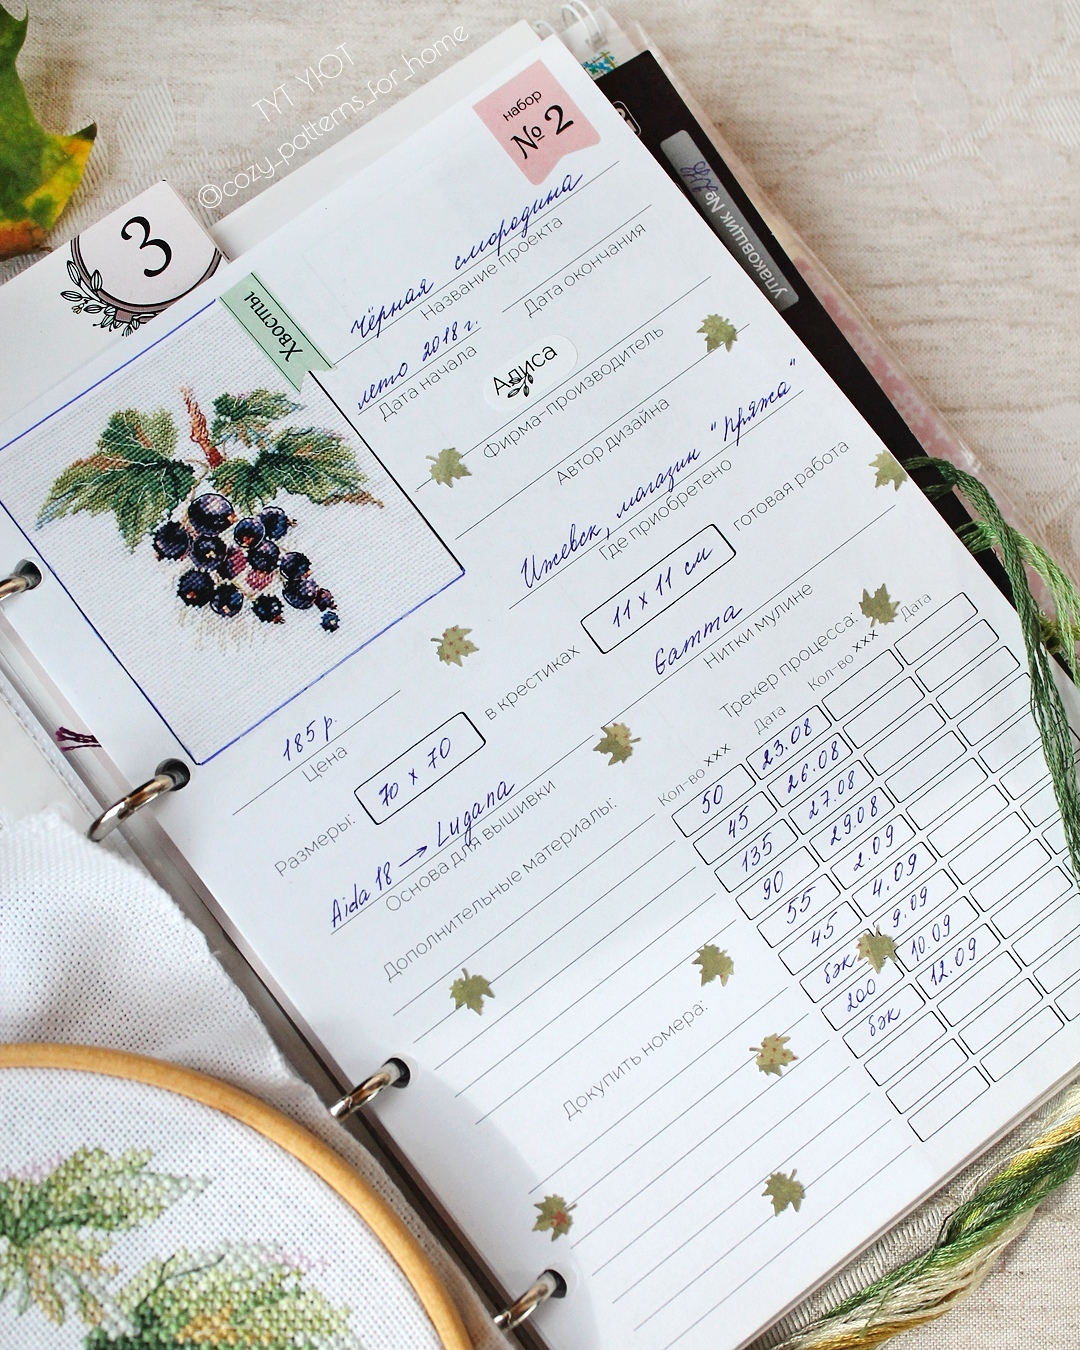 ТУТ УЮТ
@cozy_patterns_for_home
3
Хвосты
набор
№ 2
Чёрная смородина
Название проекта
лето 2018 г.
Дата начала
Дата окончания
Алиса
Фирма-производитель
Автор дизайна
Ижевск, магазин "Пряжа"
Где приобретено
185 р.
Цена
Размеры:
70 x 70
в крестиках
11 x 11 см
готовая работа
Aida 18 → Lugana
Основа для вышивки
Gamma
Нитки мулине
Дополнительные материалы:
Докупить номера:
Трекер процесса:
Кол-во xxx Дата Кол-во xxx Дата
50 23.08
45 26.08
135 27.08
90 29.08
55 2.09
45 4.09
бэк 9.09
200 10.09
бэк 12.09
упаковщик №